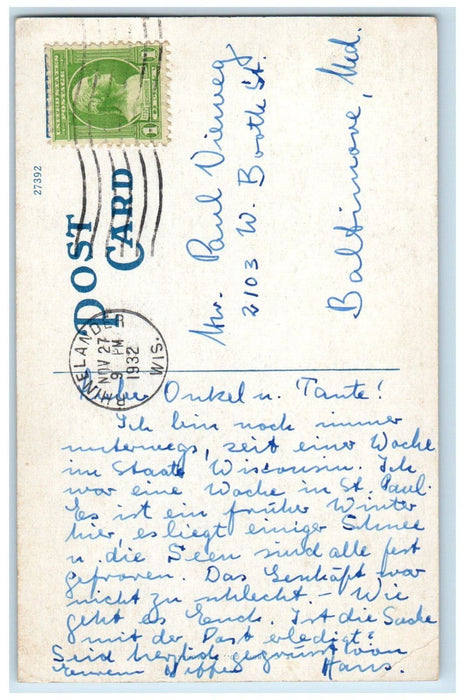 UNITED STATES POSTAGE
27392
POST CARD
RHINELANDER
NOV 27
9 PM
1932
WIS.
Mr. Paul Vieweg
2103 W. Booth St.
Baltimore, Md.
Liebe Onkel u. Tante!
Ich bin noch immer
unterwegs, seit einer Woche
im Staate Wisconsin. Ich
war eine Woche in St. Paul.
Es ist ein früher Winter
hier, es liegt einiger Schnee
u. die Seen sind alle fest
gefroren. Das Geschäft war
nicht zu schlecht. – Wie
geht es Euch. Ist die Sache
mit der Post erledigt?
Seid herzlich gegrüsst von
Eurem Neffen Hans.